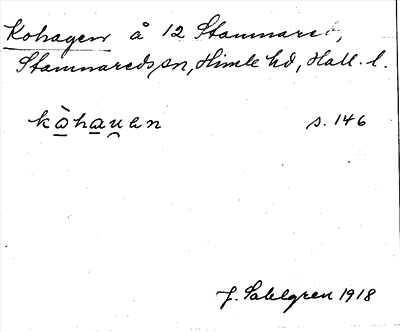 Kohagen å 12 Stamnared,
Stamnareds sn, Himle hd, Hall. l.
kòhauen s. 146
J. Sahlgren 1918